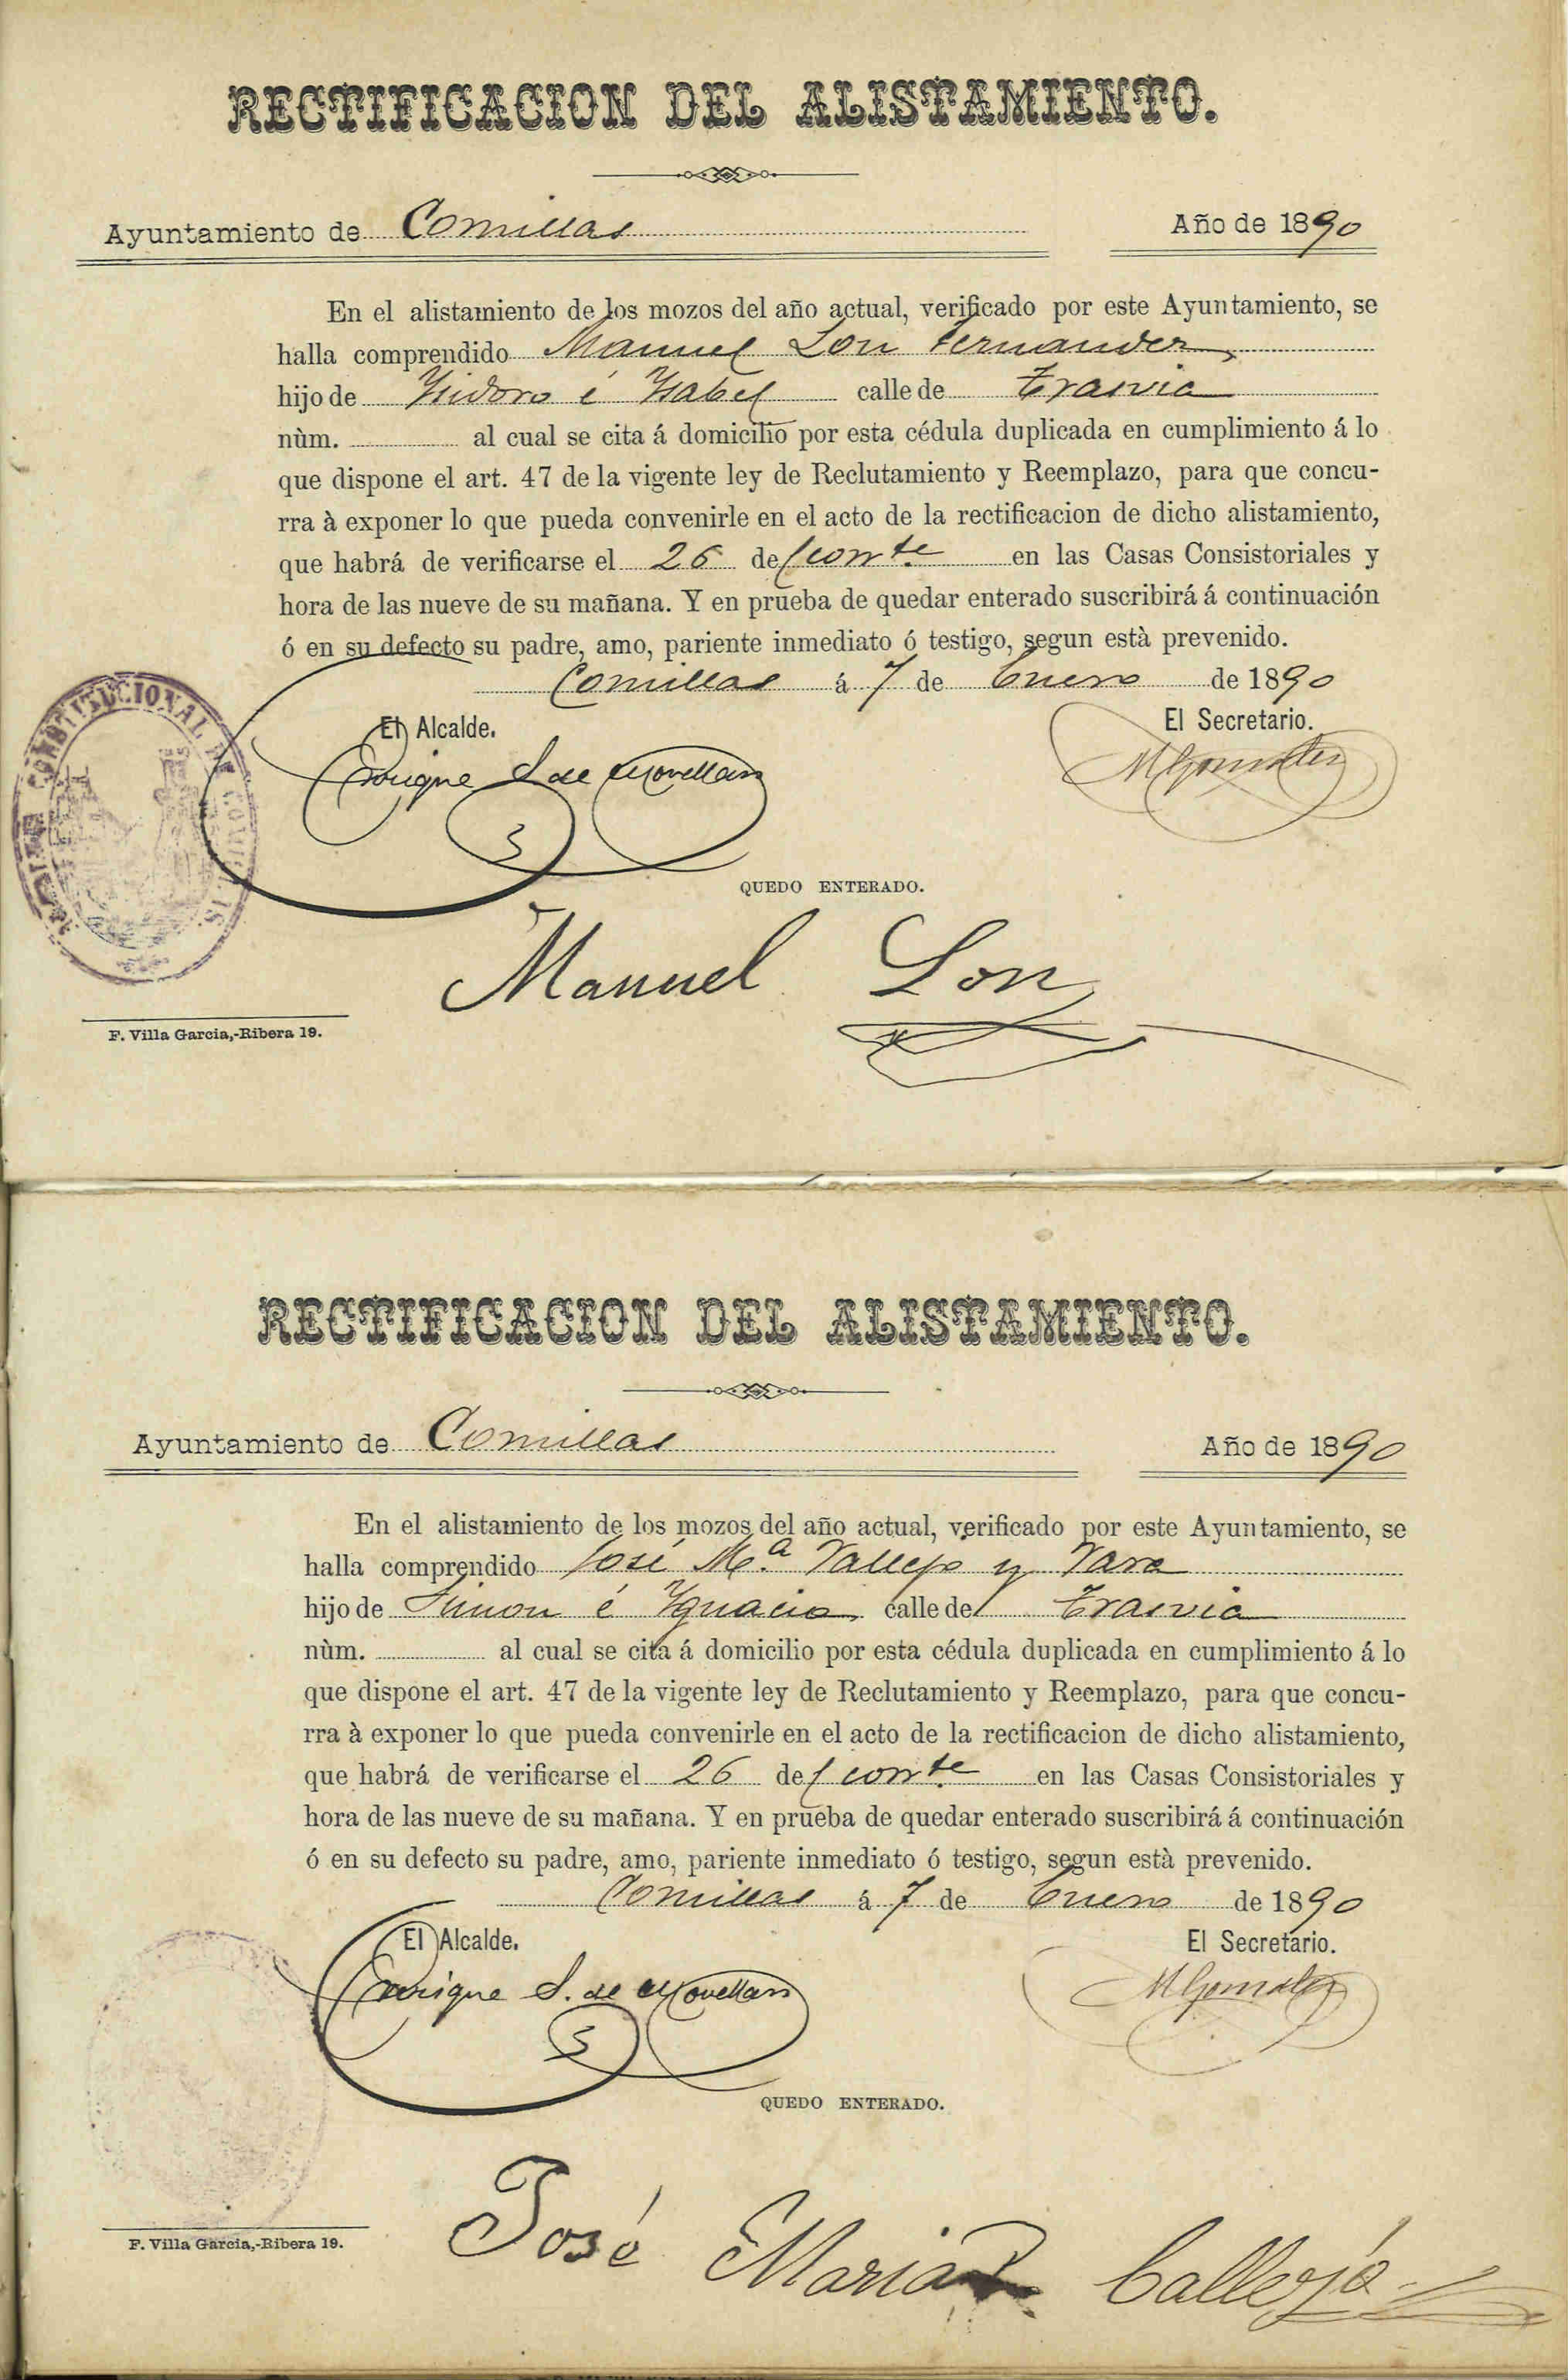 RECTIFICACION DEL ALISTAMIENTO.
Ayuntamiento de Comillas Año de 1890
En el alistamiento de los mozos del año actual, verificado por este Ayuntamiento, se
halla comprendido Manuel Lon Fernandez,
hijo de Ysidoro é Ysabel calle de Trasvia
nùm. al cual se cita á domicilio por esta cédula duplicada en cumplimiento á lo
que dispone el art. 47 de la vigente ley de Reclutamiento y Reemplazo, para que concu-
rra à exponer lo que pueda convenirle en el acto de la rectificacion de dicho alistamiento,
que habrá de verificarse el 26 del corrte. en las Casas Consistoriales y
hora de las nueve de su mañana. Y en prueba de quedar enterado suscribirá á continuación
ó en su defecto su padre, amo, pariente inmediato ó testigo, segun està prevenido.
Comillas á 7 de Enero de 1890
El Alcalde. El Secretario.
Enrique S. de Movellan MGonzalez
CONSTITUCIONAL DE COMILLAS
QUEDO ENTERADO.
Manuel Lon
F. Villa Garcia,-Ribera 19.
RECTIFICACION DEL ALISTAMIENTO.
Ayuntamiento de Comillas Año de 1890
En el alistamiento de los mozos del año actual, verificado por este Ayuntamiento, se
halla comprendido José Mª Vallejo y Vara
hijo de Simon é Ygnacia, calle de Trasvia
nùm. al cual se cita á domicilio por esta cédula duplicada en cumplimiento á lo
que dispone el art. 47 de la vigente ley de Reclutamiento y Reemplazo, para que concu-
rra à exponer lo que pueda convenirle en el acto de la rectificacion de dicho alistamiento,
que habrá de verificarse el 26 del corrte. en las Casas Consistoriales y
hora de las nueve de su mañana. Y en prueba de quedar enterado suscribirá á continuación
ó en su defecto su padre, amo, pariente inmediato ó testigo, segun està prevenido.
Comillas á 7 de Enero de 1890
El Alcalde. El Secretario.
Enrique S. de Movellan MGonzalez
QUEDO ENTERADO.
José Maria Ballejo
F. Villa Garcia,-Ribera 19.